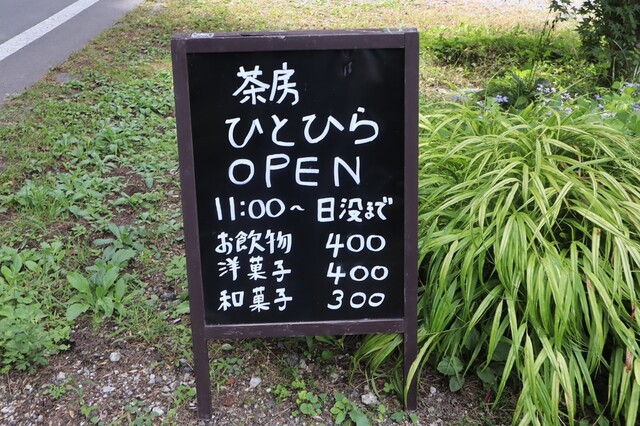 茶房
ひとひら
OPEN
11:00～日没まで
お飲物 400
洋菓子 400
和菓子 300